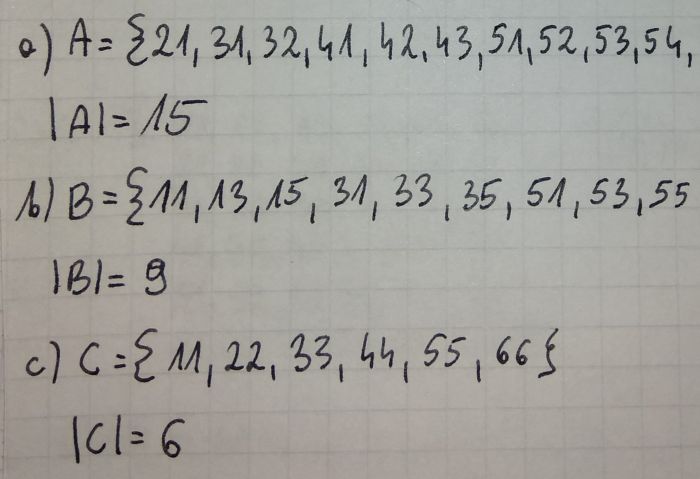 a) A = {21, 31, 32, 41, 42, 43, 51, 52, 53, 54,
|A| = 15
b) B = {11, 13, 15, 31, 33, 35, 51, 53, 55
|B| = 9
c) C = {11, 22, 33, 44, 55, 66}
|C| = 6